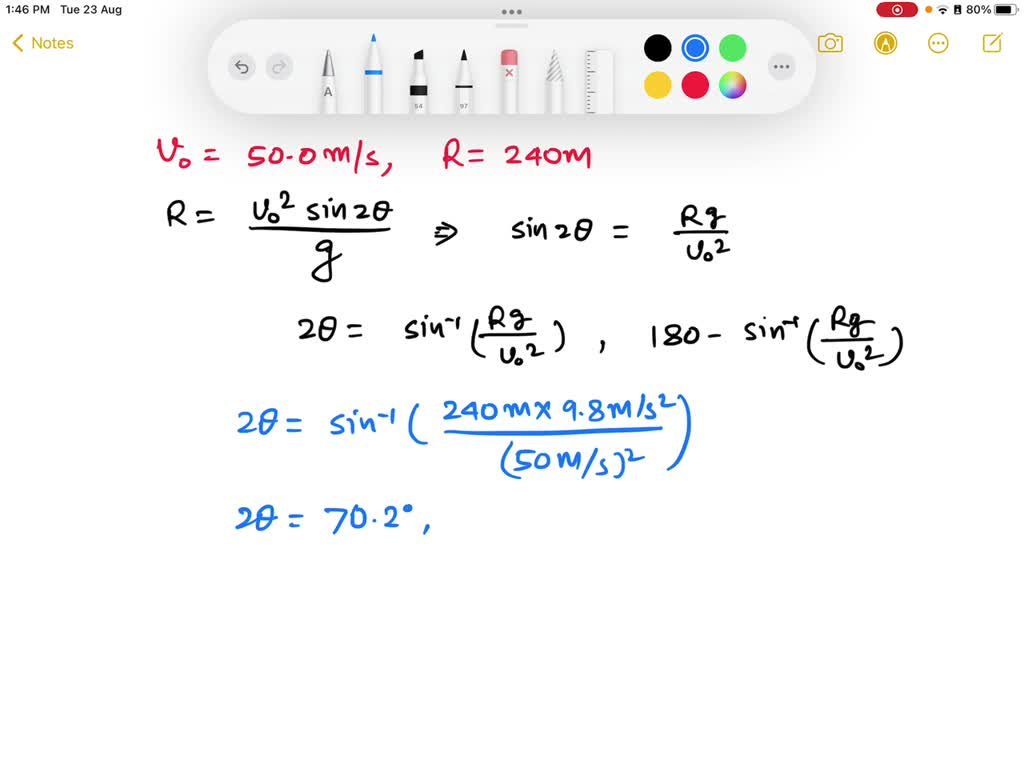 1:46 PM Tue 23 Aug 80%
Notes
A 54 97
v₀ = 50.0 m/s, R = 240 m
R = v₀² sin 2θ / g ⇒ sin 2θ = Rg / v₀²
2θ = sin⁻¹ (Rg / v₀²) , 180 - sin⁻¹ (Rg / v₀²)
2θ = sin⁻¹ (240 m × 9.8 m/s² / (50 m/s)²)
2θ = 70.2°,